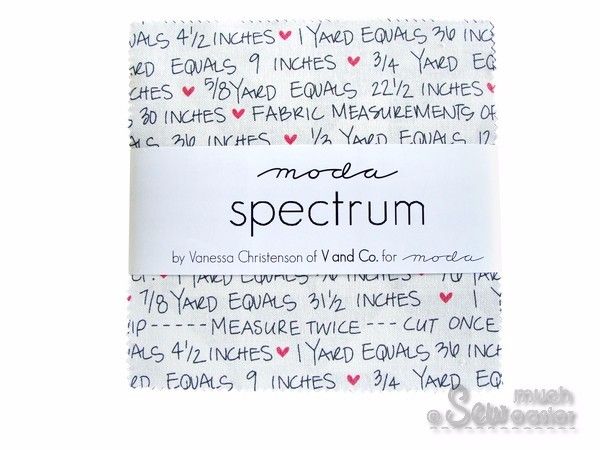 UALS 4½ INCHES ♥ 1 YARD EQUALS 36 INCHES
RD EQUALS 9 INCHES ♥ 3/4 YARD EQ
CHES ♥ 5/8 YARD EQUALS 22½ INCHES ♥
S 30 INCHES ♥ FABRIC MEASUREMENTS OF
ALS 36 INCHES ♥ 1/3 YARD EQUALS 12
moda
spectrum
by Vanessa Christenson of V and Co. for moda
♥ 7/8 YARD EQUALS 31½ INCHES ♥ 1
IP-----MEASURE TWICE --- CUT ONCE
ALS 4½ INCHES ♥ 1 YARD EQUALS 36 INCH
RD EQUALS 9 INCHES ♥ 3/4 YARD EQ
Sew much easier